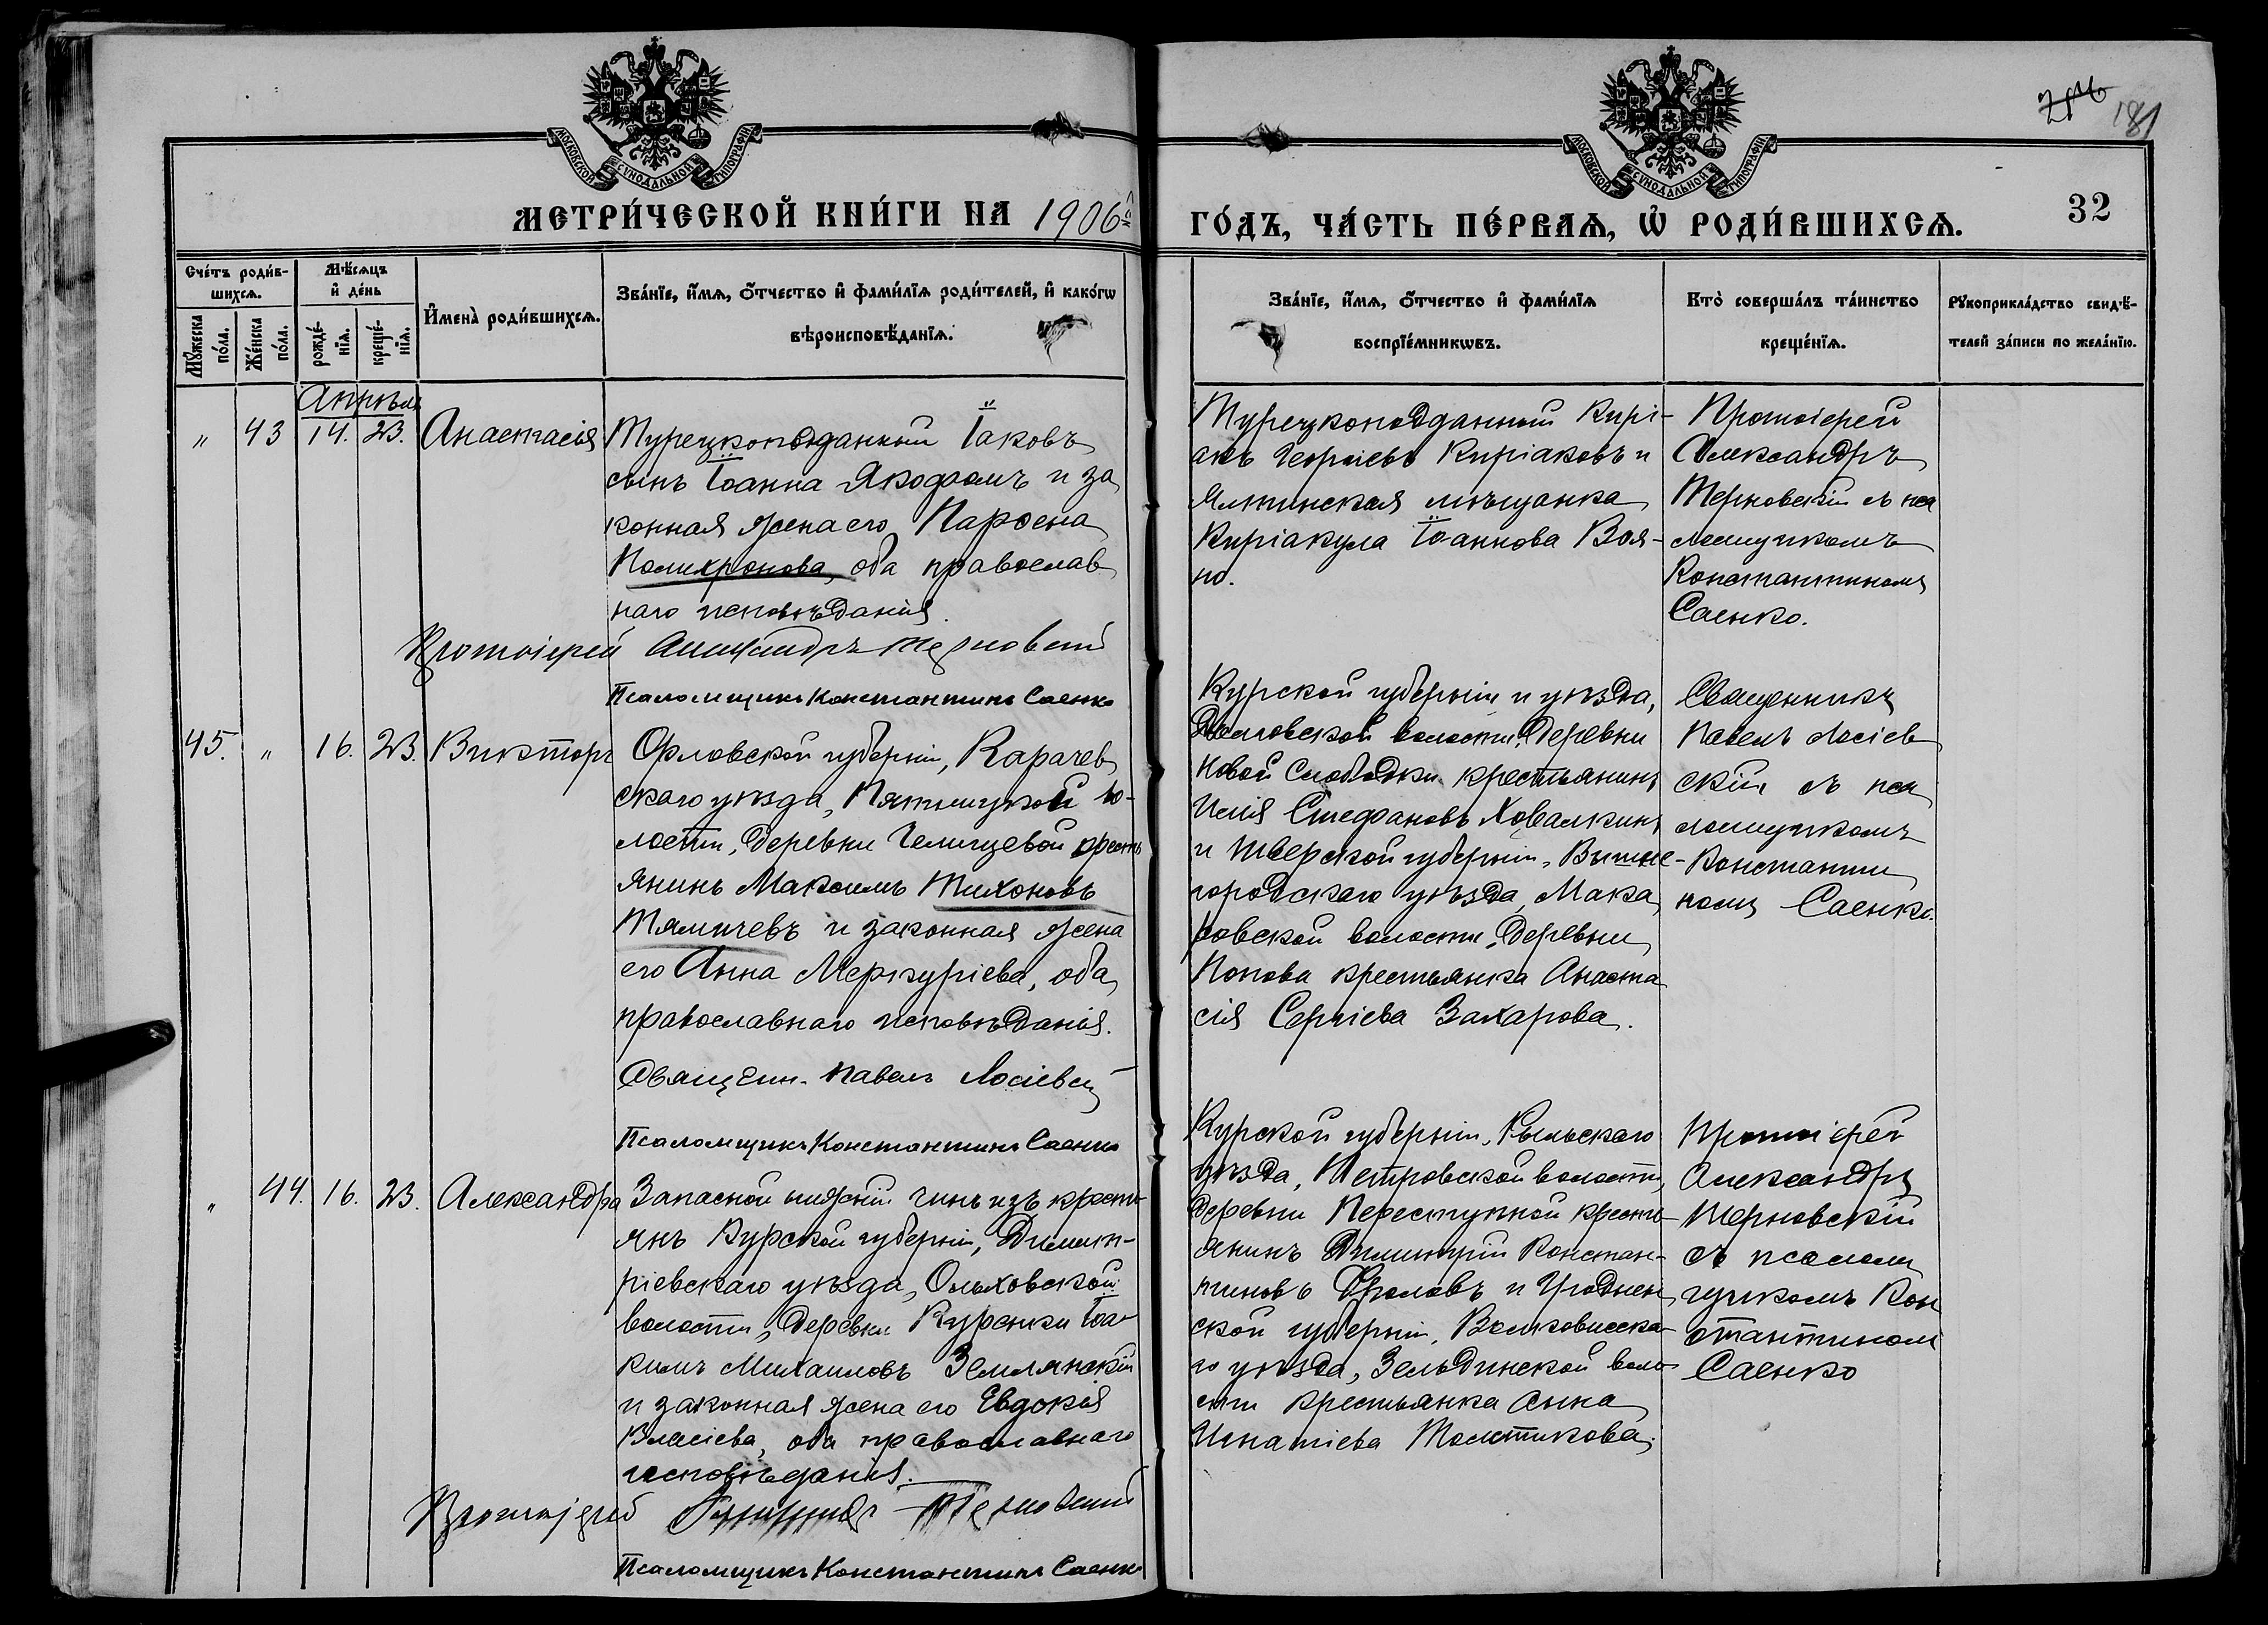 МОСКОВСКОЙ СѴНОДАЛЬНОЙ ТИПОГРАФІИ
МОСКОВСКОЙ СѴНОДАЛЬНОЙ ТИПОГРАФІИ
181
МЕТРИ́ЧЕСКОЙ КНИ́ГИ НА 1906й
ГО́ДЪ, ЧА́СТЬ ПЕ́РВАѦ, Ѡ҆ РОДИ́ВШИХСѦ.
32
Сче́тъ роди́в-
шихсѧ.
Мѣ́сѧцъ
и҆ де́нь
Мꙋ́жеска
по́ла.
Же́нска
по́ла.
рожде́-
нїѧ.
креще́-
нїѧ.
И҆мена̀ роди́вшихсѧ.
Зва́нїе, и҆́мѧ, о҆́тчество и҆ фами́лїѧ роди́телей, и҆ како́гѡ
вѣроисповѣ́данїѧ.
Зва́нїе, и҆́мѧ, о҆́тчество и҆ фами́лїѧ
воспрїе́мникѡвъ.
Кто̀ соверша́лъ та́инство
креще́нїѧ.
Рꙋкоприкла́дство свидѣ́-
телей за́писи по жела́нїю.
Апрѣль
" 43 14. 23. Анастасія
Турецкоподданный Іаковъ
сынъ Іоанна Якодромъ и за
конная жена его Парѳена
Полихронова, оба православ
наго исповѣданія.
Протоіерей Александръ Терновскій
Псаломщикъ Константинъ Саенко
Турецкоподданный Кирі-
акъ Георгіевъ Киріаковъ и
Ялтинская мѣщанка
Киріакула Іоаннова Воя-
но.
Протоіерей
Александръ
Терновскій съ пса
ломщикомъ
Константиномъ
Саенко.
45. " 16. 23. Викторъ
Орловской губерніи, Карачев
скаго уѣзда, Пятницкой во-
лости, деревни Челищевой кресть
янинъ Максимъ Тихоновъ
Тямичевъ и законная жена
его Анна Меркуріева, оба
православнаго исповѣданія.
Священ. Павелъ Лосіевскій
Псаломщикъ Константинъ Саенко
Курской губерніи и уѣзда,
волости, деревни
Новой Слободки крестьянинъ
Илія Стефановъ Ховалкинъ
и Тверской губерніи, Вышне-
городскаго уѣзда, Мака
ровской волости, деревни
Попова крестьянка Анаста
сія Сергіева Захарова.
Священникъ
Павелъ Лосіев
скій съ пса
ломщикомъ
Константи
номъ Саенко.
" 44. 16. 23. Александра
Запасной нижній чинъ изъ кресть
янъ Курской губерніи, Димит-
ріевскаго уѣзда, Ольховской
волости, деревни Куренки Іоа-
кимъ Михаиловъ Землянскій
и законная жена его Евдокія
Власіева, оба православнаго
исповѣданія.
Протоіерей Александръ Терновскій
Псаломщикъ Константинъ Саенко
Курской губерніи, Рыльскаго
уѣзда, Петровской волости,
деревни Переступной кресть-
янинъ Димитрій Констан-
тиновъ Фроловъ и Гроднен
ской губерніи, Волковисска-
го уѣзда, Зельдинской воло
сти крестьянка Анна
Игнатіева Толстикова.
Протоіерей
Александръ
Терновскій
съ псалом
щикомъ Кон
стантиномъ
Саенко